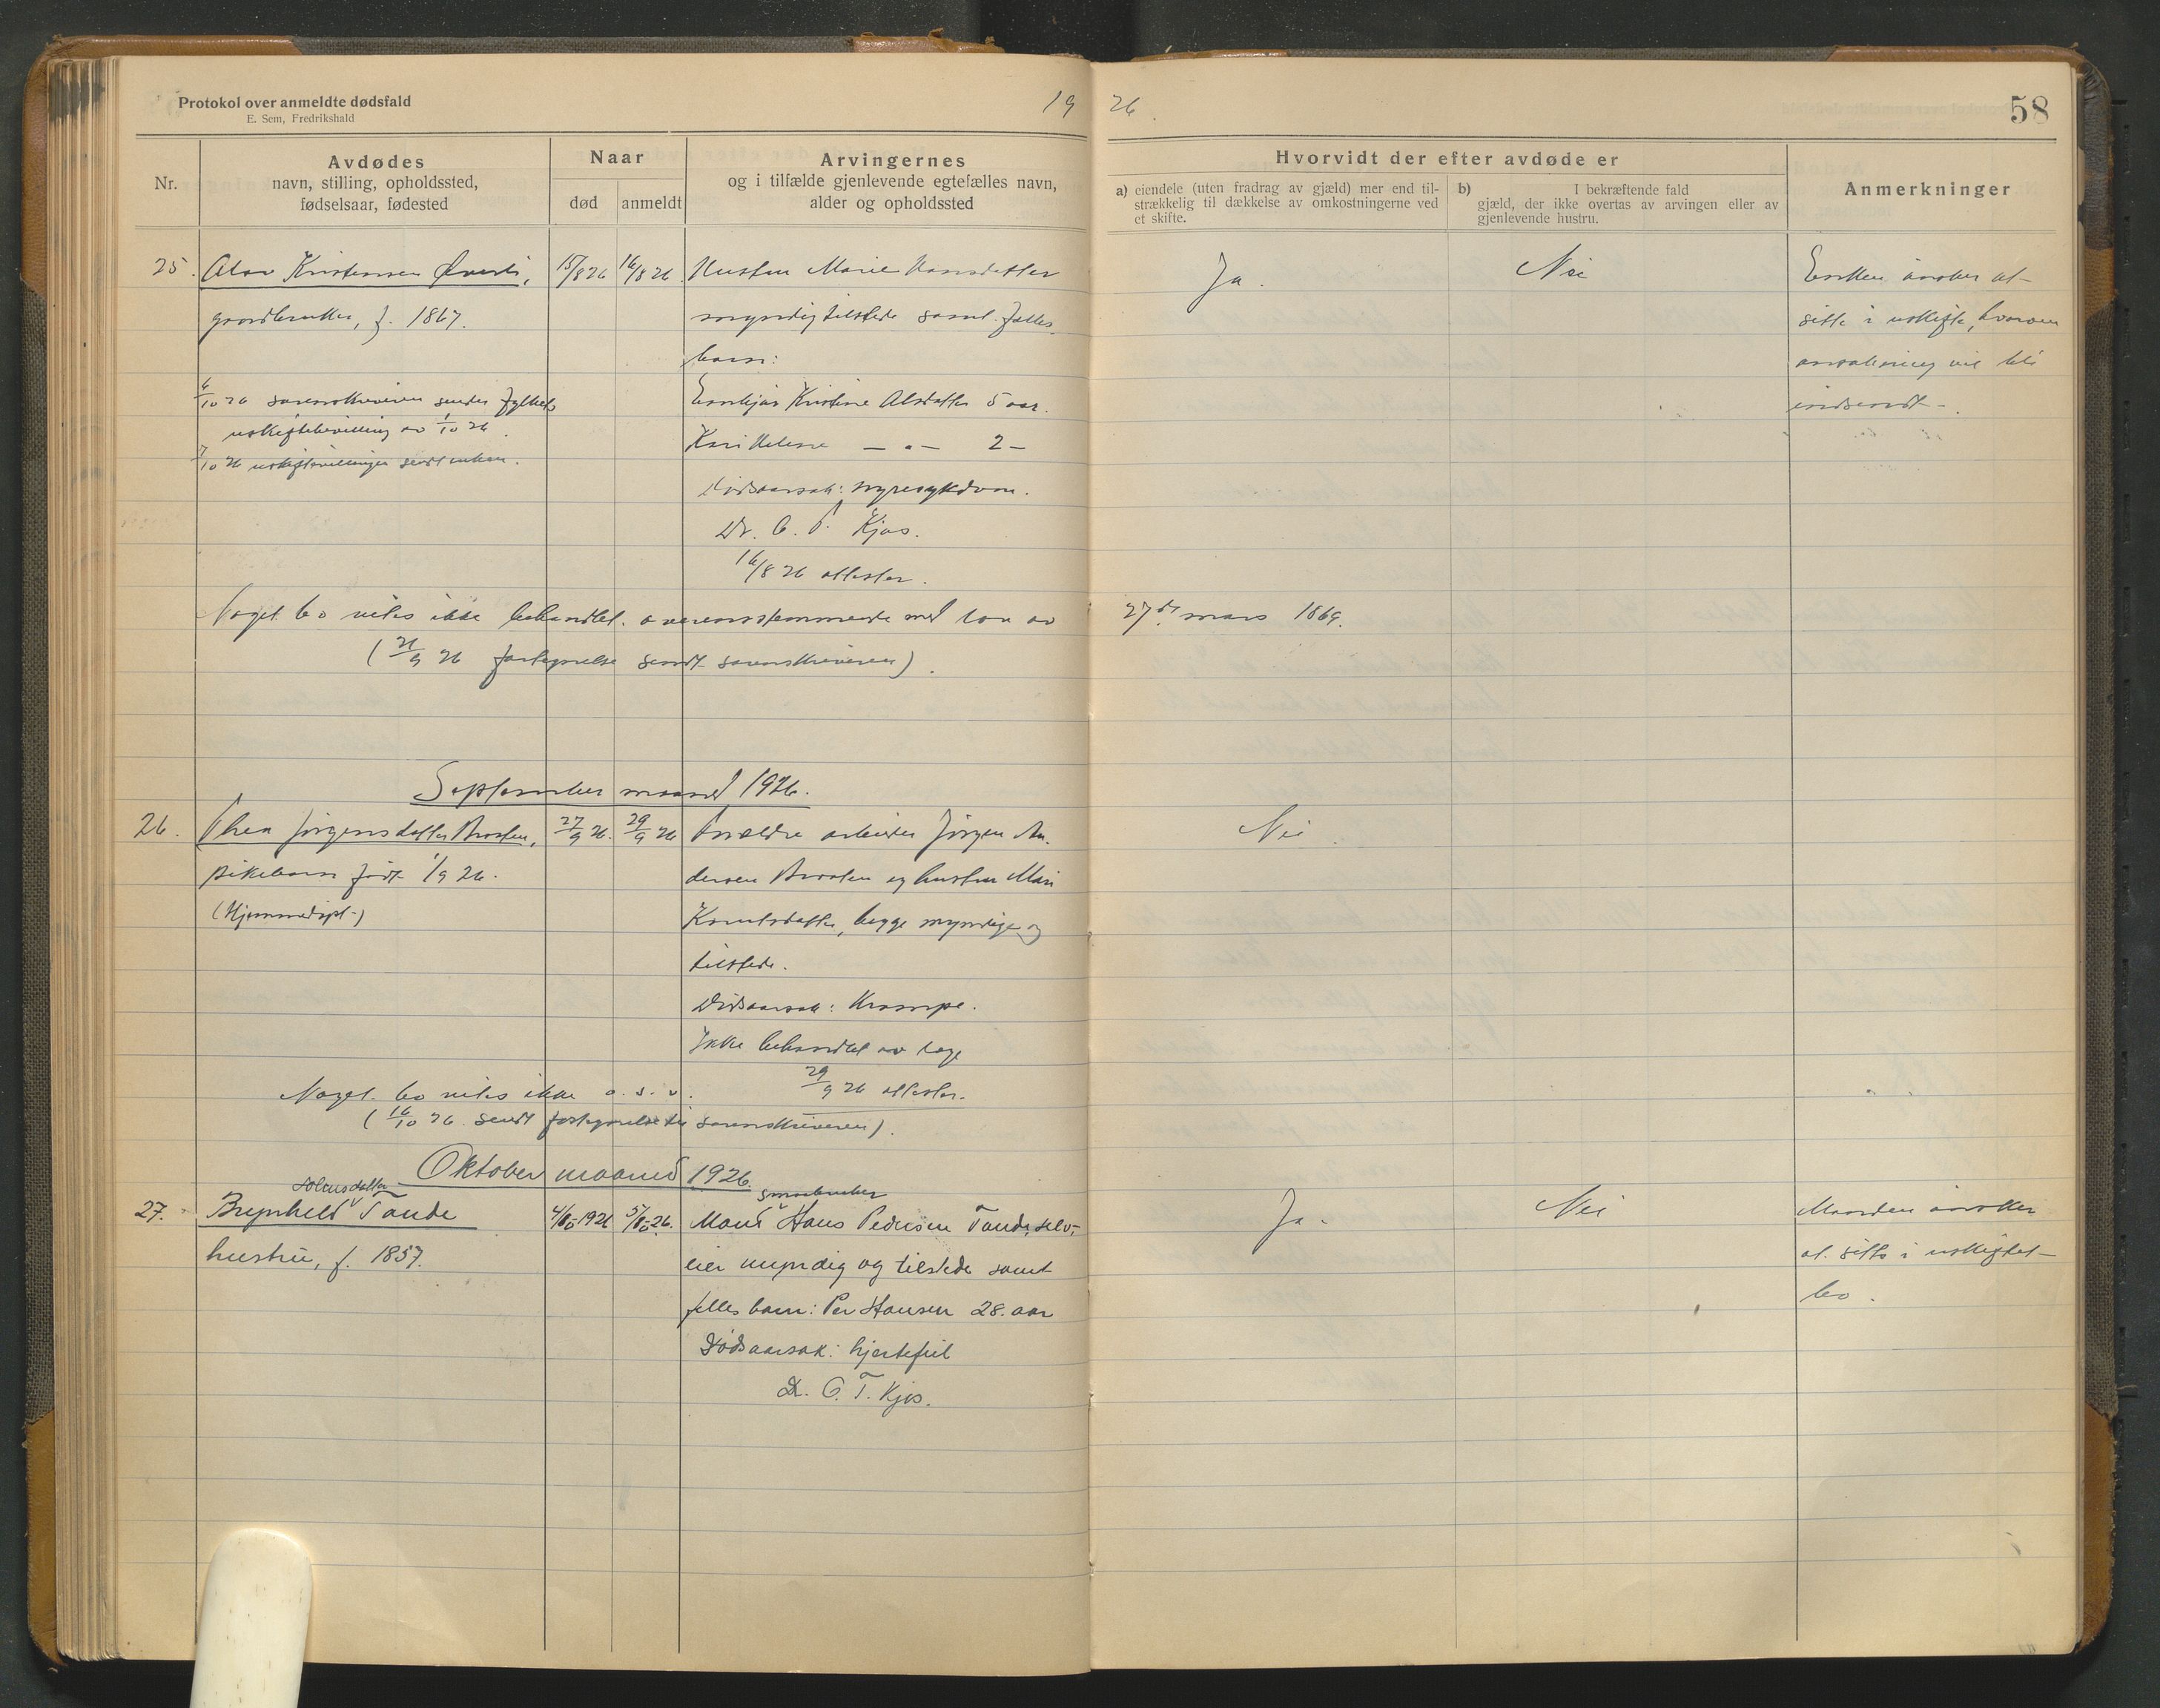 Protokol over anmeldte dødsfald
E. Sem, Fredrikshald
19 26.
58
Nr.
Avdødes
navn, stilling, opholdssted,
fødselsaar, fødested
Naar
død
anmeldt
Arvingernes
og i tilfælde gjenlevende egtefælles navn,
alder og opholdssted
Hvorvidt der efter avdøde er
a) eiendele (uten fradrag av gjæld) mer end til-
strækkelig til dækkelse av omkostningerne ved
et skifte.
b) I bekræftende fald
gjæld, der ikke overtas av arvingen eller av
gjenlevende hustru.
Anmerkninger
25. Olav Kristensen
gaardbruker, f. 1867.
15/8 26
16/8 26
Hustru Marie Hansdatter
myndig tilstede samt fælles
barn:
Kristine 5 aar.
Kari Helene — " — 2 —
Dødsaarsak: nyresykdom.
Dr. O. T. Kjos.
16/8 26 attester.
Ja.
Nei
Enken ønsker at
sitte i uskifte, hvorom
ansøkning vil bli
indsendt.
6/10 26 sorenskriveren sender fylkets
uskiftebevilling av 1/10 26.
7/10 26 sendt enken.
Noget bo vites ikke behandlet overensstemmende med lov av 27de mars 1869.
(21/9 26 fortegnelse sendt sorenskriveren).
September maaned 1926.
26. Thea Jørgensdatter Braaten,
pikebarn født 1/9 26.
(Hjemmedøpt)
27/9 26.
29/9 26
Forældre arbeider Jørgen An-
dersen Braaten og hustru Mari
Knutsdatter, begge myndige og
tilstede.
Dødsaarsak: Krampe.
Ikke behandlet av læge
29/9 26 attester.
Nei.
Noget bo vites ikke o. s. v.
(16/10 26. sendt fortegnelse til sorenskriveren).
Oktober maaned 1926.
27. Brynhild Tande
hustru, f. 1857.
4/10-1926
5/10-26.
smaabruker
Mand Hans Pedersen Tande, selv-
eier myndig og tilstede samt
felles barn: Per Hansen 28. aar
Dødsaarsak: hjertefeil
Dr. O. T. Kjos.
Ja.
Nei
Manden ønsker
at sitte i uskiftet
bo.